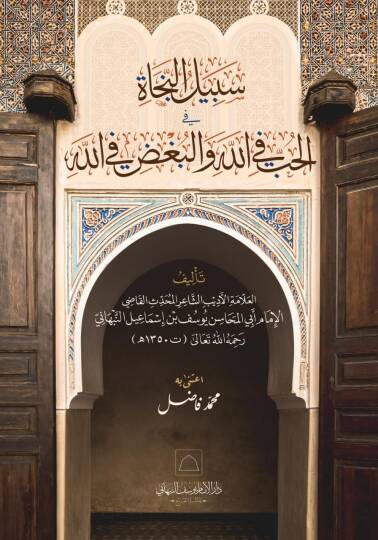 سَبِيلُ النَّجَاةِ
فِي
الحُبِّ فِي اللهِ وَالبُغْضِ فِي اللهِ
تَأْلِيفُ
العَلَّامَةِ الأَدِيبِ الشَّاعِرِ المُحَدِّثِ القَاضِي
الإِمَامِ أَبِي المَحَاسِنِ يُوسُفَ بْنِ إِسْمَاعِيلَ النَّبْهَانِيّ
رَحِمَهُ اللهُ تَعَالَى (ت ١٣٥٠هـ)
اعْتَنَى بِهِ
مُحَمَّد فَاضِل
دَارُ الإِمَامِ يُوسُفَ النَّبْهَانِيّ